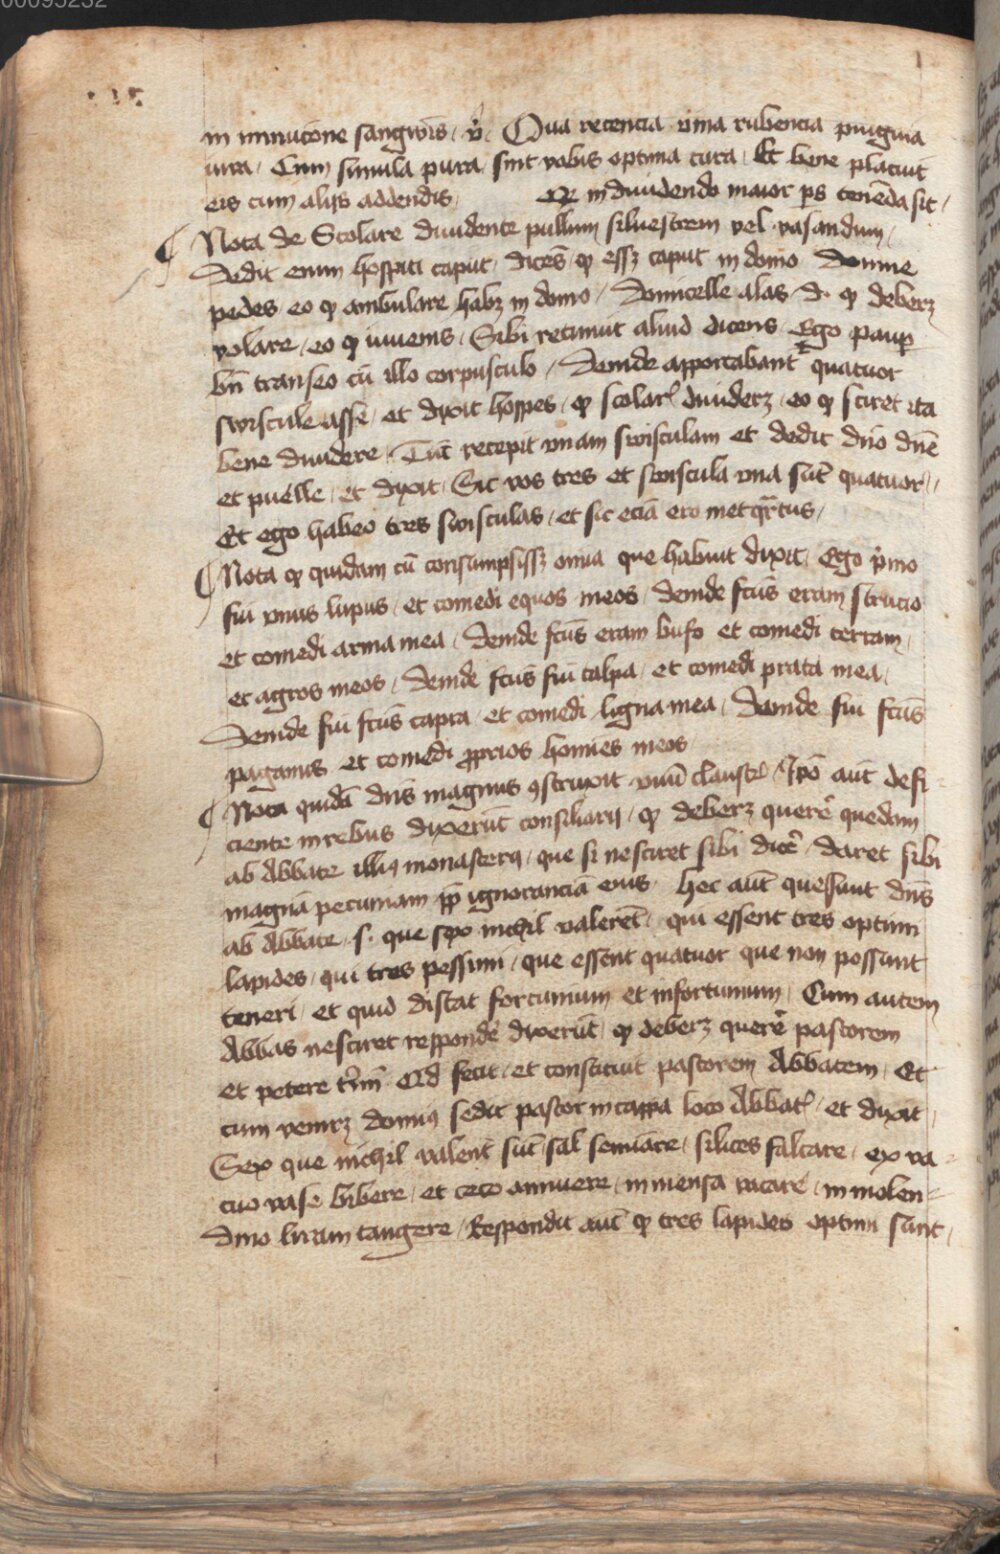 00095232
in minucone sangwis / v̄. Oua recencia vina rubencia pingwia
iura / Cum simula pura / sint vobis optima cura / Et bene placuit
eis cum alijs addendis / Qr̄ in diuidendo maior ps tenēda sit /
Nota de Scolare diuidente pullum siluestrem vel vasandum /
Dedit enim hospiti caput / dicēs / qꝫ essꝫ caput in domo Domine
pedes eo qꝫ ambulare habꝫ in domo / Domicelle alas d. qꝫ deberꝫ
volare / eo qꝫ iuuenis / Sibi retinuit aliud dicens / Ego paup
bn̄ transeo cū illo corpusculo / Deinde apportabant̄ quatuor
swiscule asse / et dixit hospes / qꝫ scolar̄ diuiderꝫ / eo qꝫ sciret ita
bene diuidere / Tūc recepit vnam swisculam et dedit dn̄o dn̄e
et puelle / et dixit / Sic vos tres et swiscula vna sūt quatuor //
Et ego habeo tres swisculas / et sic eciā ero metqr̄tus /
Nota qꝫ quidam cū consumpsissꝫ omīa que habuit dixit / Ego p̄mo
fui vnus lupus / et comedi equos meos / deinde fcūs eram strucio
et comedi arma mea / Deinde fcūs eram bufo et comedi terram /
et agros meos / Deinde fcūs fui talpa / et comedi prata mea /
Deinde fui fcūs capra / et comedi ligna mea / Deinde fui fcūs
paganus et comedi ꝓprios homīes meos
Nota quidā dn̄s magnus ꝯstruxit vnū claustr̄ / Ipō aūt defi-
ciente in rebus dixerūt consiliarij / qꝫ deberꝫ querē quedam
ab Abbate illiꝰ monasterij / que si nesciret sibi dicē / daret sibi
magnā pecuniam ꝓp̄ ignoranciā eius / Hec aūt quesiuit dn̄s
ab Abbate / s. que sex nichil valerēt / qui essent tres optimi
lapides / qui tres pessimi / que essent quatuor que non possunt
teneri / et quid distat fortunium et infortunium / Cum autem
Abbas nesciret respondē dixerūt / qꝫ deberꝫ querē pastorem
et petere t̄m̄ Qd fecit / et constituit pastorem Abbatem / Et
cum venirꝫ domiꝰ sedit pastor in cappa loco Abbat̄ / et dixit /
Sex que nichil valent sūt / sal semīare / silices falcare / ex va-
cuo vase bibere / et ceco annuere / in mensa vacare / in molen-
dino liram tangere / Respondit aūt qꝫ tres lapides optimi sunt /